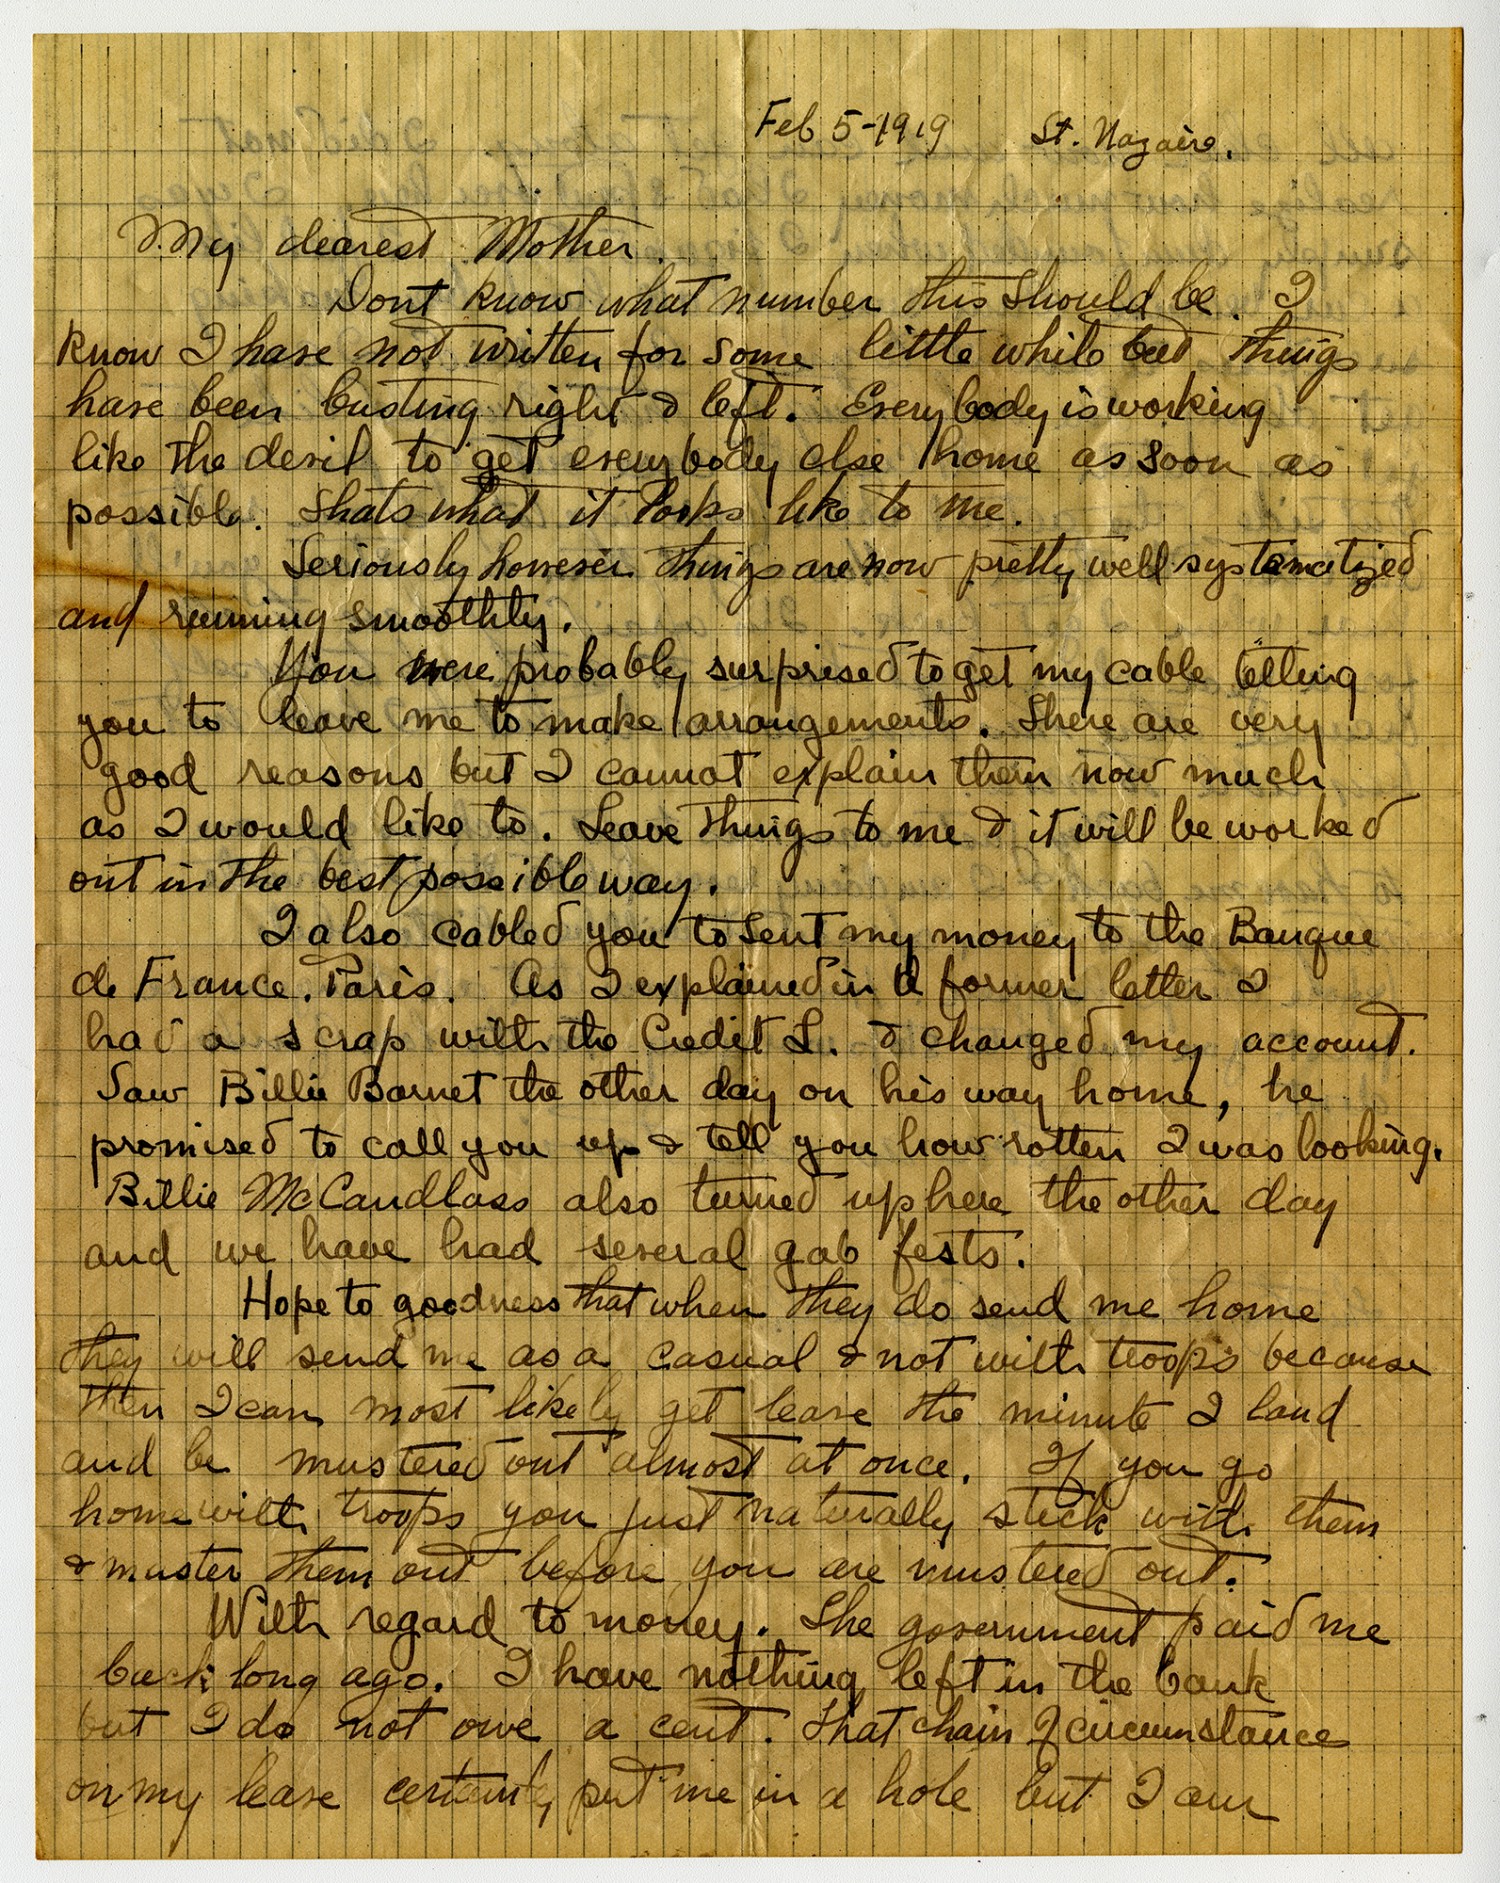 Feb 5-1919 St. Nazaire.
My dearest Mother.
Dont know what number this should be. I
know I have not written for some little while but things
have been busting right & left. Everybody is working
like the devil to get everybody else home as soon as
possible. Thats what it looks like to me.
Seriously however things are now pretty well systematized
and running smoothly.
You were probably surprised to get my cable telling
you to leave me to make arrangements. There are very
good reasons but I cannot explain them now much
as I would like to. Leave things to me & it will be worked
out in the best possible way.
I also cabled you to sent my money to the Banque
de France. Paris. As I explained in a former letter I
had a scrap with the Credit L. & changed my account.
Saw Billie Barnet the other day on his way home, he
promised to call you up & tell you how rotten I was looking.
Billie McCandlass also turned up here the other day
and we have had several gab fests.
Hope to goodness that when they do send me home
they will send me as a casual & not with troops because
then I can most likely get leave the minute I land
and be mustered out almost at once. If you go
home with troops you just naturally stick with them
& muster them out before you are mustered out.
With regard to money. The government paid me
back long ago. I have nothing left in the bank
but I do not owe a cent. That chain of circumstance
on my leave certainly put me in a hole but I am